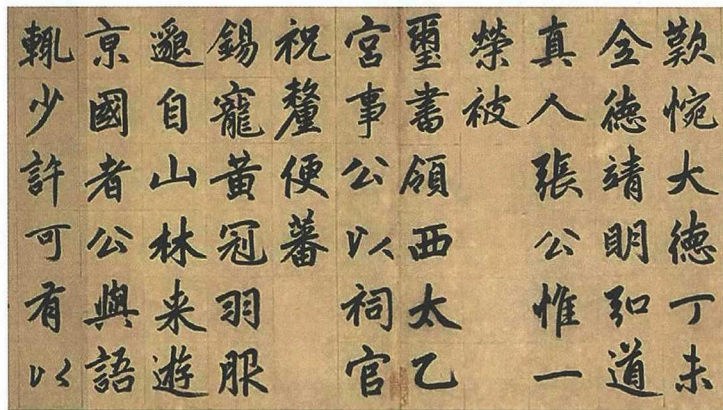 歎惋大德丁未
全德靖明弘道
真人張公惟一
榮被
璽書領西太乙
宮事公以祠官
祝釐便蕃
錫寵黃冠羽服
邈自山林来遊
京國者公與語
輒少許可有以